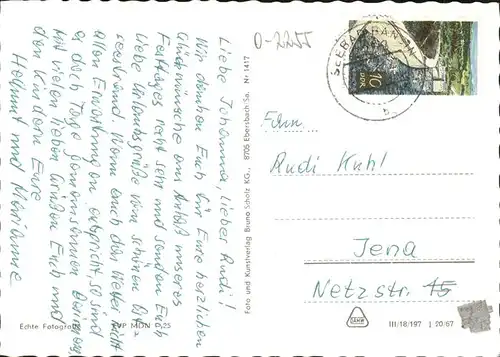 Liebe Johanna, lieber Rudi!
Wir danken Euch für Eure herzlichen
Glückwünsche am Anlaß unseres
Festtages recht sehr und senden Euch
liebe Urlaubsgrüße vom schönen
Ostseestrand. Wenn auch das Wetter nicht
allen Erwartungen entspricht, so sind
es doch Tage gemeinsamen
Mit vielen lieben Grüßen Euch und
den Kindern Eure
Helmut und Marianne
Echte Fotografie
EVP MDN 0,25
Foto und Kunstverlag Bruno Scholz KG., 8705 Ebersbach Sa. Nr 1417
0-2255
SEEBAD BANSIN
10
DDR
b
Fam.
Rudi Kuhl
Jena
Netzstr. 45
III/18/197 J 20/67